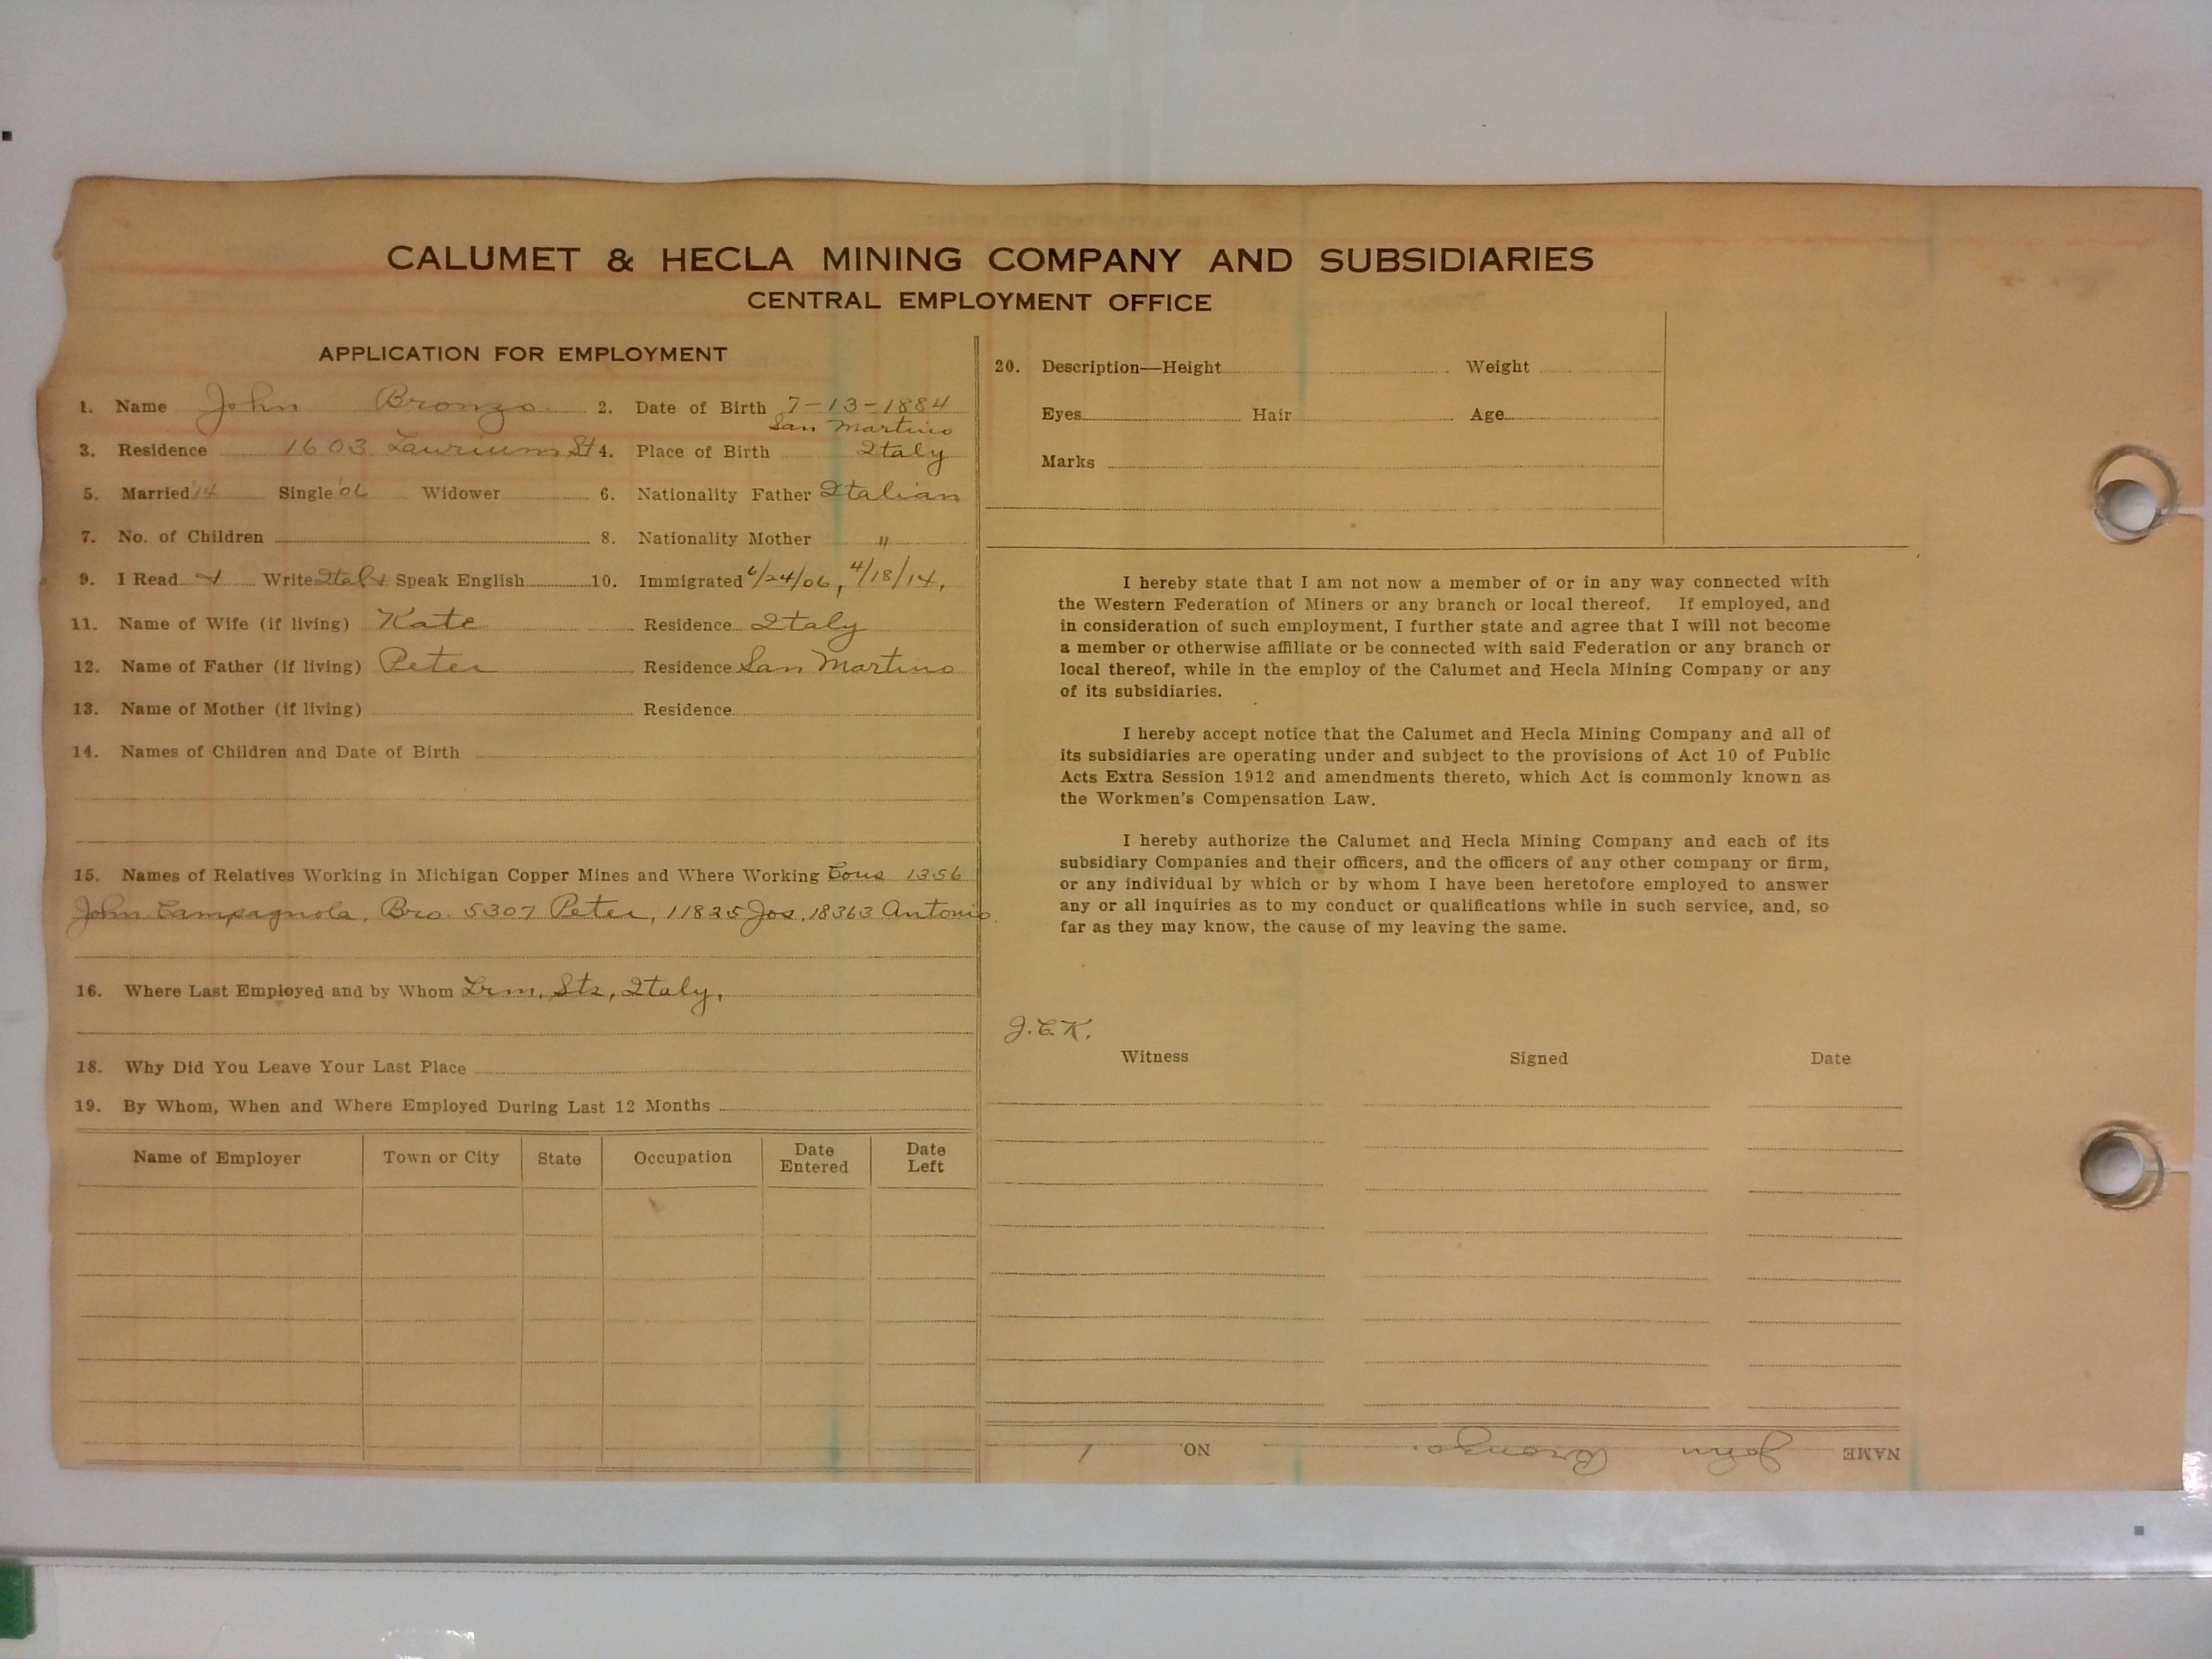 CALUMET & HECLA MINING COMPANY AND SUBSIDIARIES
CENTRAL EMPLOYMENT OFFICE
APPLICATION FOR EMPLOYMENT
1. Name John Bronzo. 2. Date of Birth 7-13-1884
3. Residence 1603 Laurium St 4. Place of Birth San Martino Italy
5. Married '14 Single '06 Widower 6. Nationality Father Italian
7. No. of Children 8. Nationality Mother "
9. I Read & Write Ital & Speak English 10. Immigrated 6/24/06, 4/18/14,
11. Name of Wife (if living) Kate Residence Italy
12. Name of Father (if living) Peter Residence San Martino
13. Name of Mother (if living) Residence
14. Names of Children and Date of Birth
15. Names of Relatives Working in Michigan Copper Mines and Where Working Cous 1356
John Campagnola, Bro. 5307 Peter, 11825 Jos, 18363 Antonio.
16. Where Last Employed and by Whom Sts, Italy,
18. Why Did You Leave Your Last Place
19. By Whom, When and Where Employed During Last 12 Months
Name of Employer Town or City State Occupation Date Entered Date Left
20. Description—Height Weight
Eyes Hair Age
Marks
I hereby state that I am not now a member of or in any way connected with
the Western Federation of Miners or any branch or local thereof. If employed, and
in consideration of such employment, I further state and agree that I will not become
a member or otherwise affiliate or be connected with said Federation or any branch or
local thereof, while in the employ of the Calumet and Hecla Mining Company or any
of its subsidiaries.
I hereby accept notice that the Calumet and Hecla Mining Company and all of
its subsidiaries are operating under and subject to the provisions of Act 10 of Public
Acts Extra Session 1912 and amendments thereto, which Act is commonly known as
the Workmen's Compensation Law.
I hereby authorize the Calumet and Hecla Mining Company and each of its
subsidiary Companies and their officers, and the officers of any other company or firm,
or any individual by which or by whom I have been heretofore employed to answer
any or all inquiries as to my conduct or qualifications while in such service, and, so
far as they may know, the cause of my leaving the same.
J.E.K.
Witness Signed Date
NAME John Bronzo. NO. 1